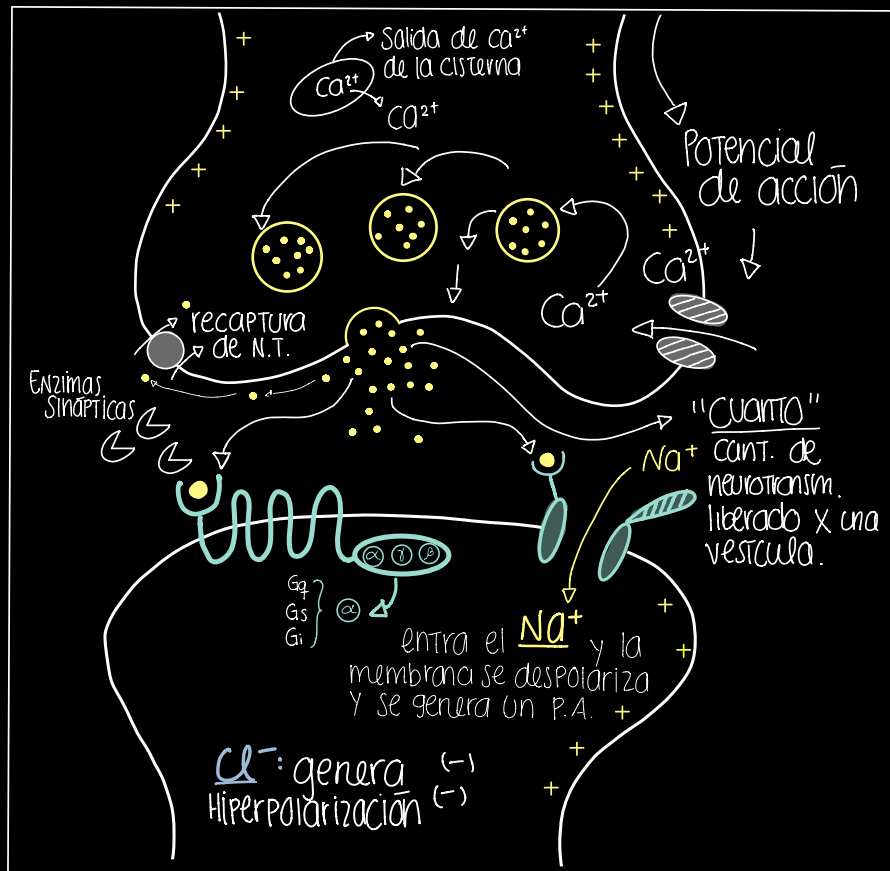 Salida de Ca²⁺
de la cisterna
Ca²⁺
Ca²⁺
Potencial
de acción
Ca²⁺
Ca²⁺
recaptura
de N.T.
Enzimas
sinápticas
"CUANTO"
cant. de
neurotransm.
liberado x una
vesícula.
Na⁺
α γ β
Gq
Gs
Gi
α
entra el Na⁺ y la
membrana se despolariza
y se genera un P.A.
Cl⁻: genera (-)
Hiperpolarización (-)